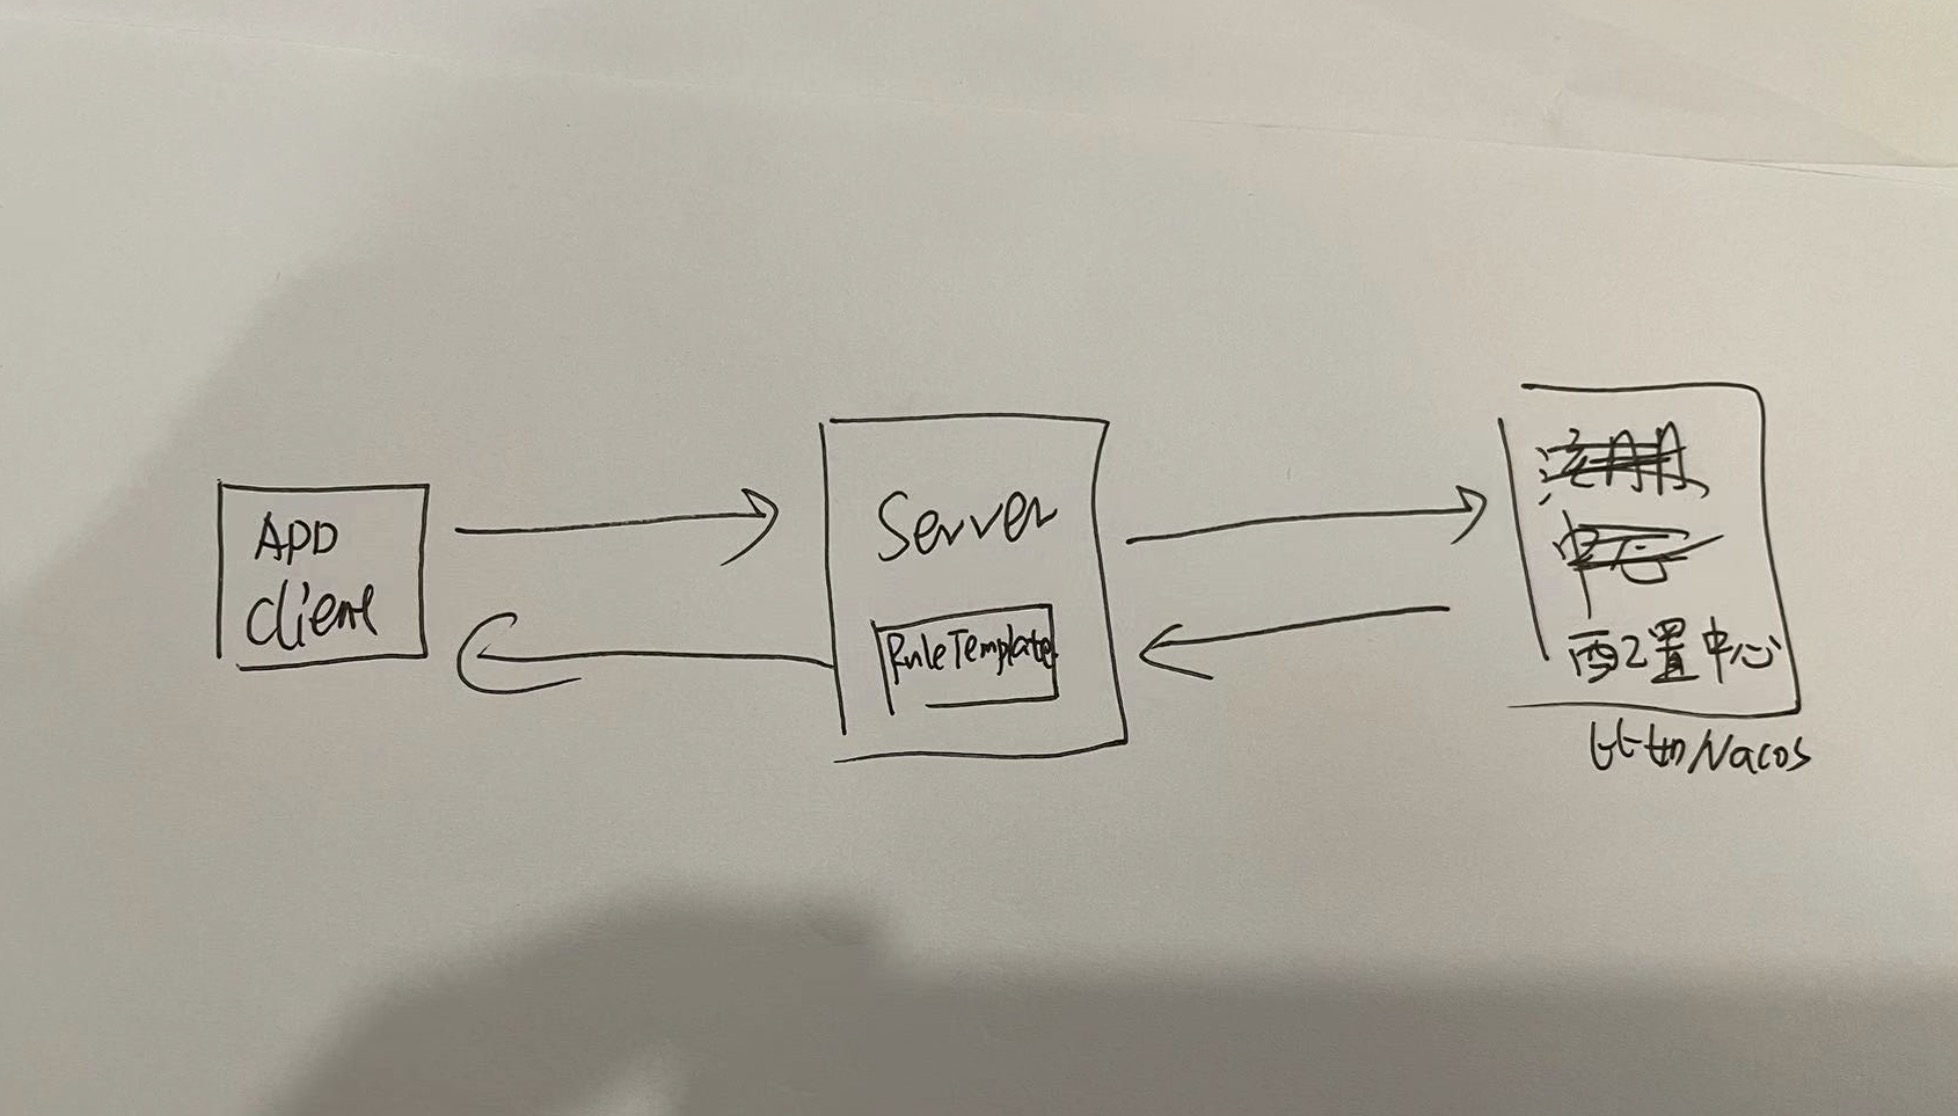 APP
client
Server
RuleTemplate
注册
中心
配置中心
比如Nacos